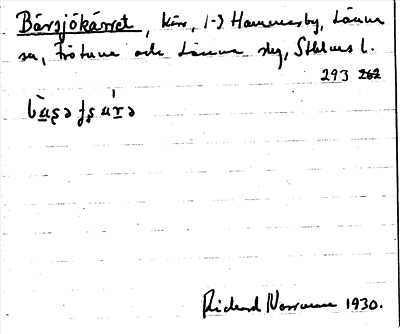 Bårsjökärret, kärr, 1-3 Hammersby, Länna
sn, Frötuna och Länna slg, Sthlms l.
293 262
Richard Norrman 1930.